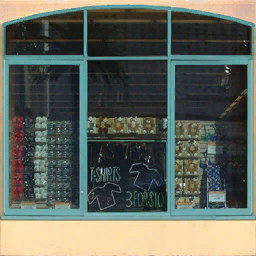 T-SHIRTS
3 FOR $10